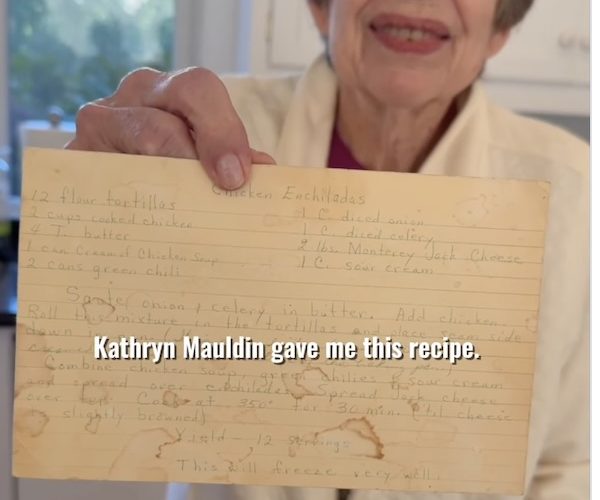 Chicken Enchiladas
12 flour tortillas
2 cups cooked chicken
4 T. butter
1 can Cream of Chicken Soup
2 cans green chili
1 C. diced onion
1 C. diced celery
2 lbs. Monterey Jack Cheese
1 C. sour cream
Saute onion & celery in butter. Add chicken.
Roll this mixture in the tortillas and place seam side
down in
Combine chicken soup, green chilies & sour cream
and spread over enchiladas. Spread Jack cheese
over top. Cook at 350° for 30 min. ('til cheese
is slightly browned)
Yield - 12 servings
This will freeze very well.
Kathryn Mauldin gave me this recipe.